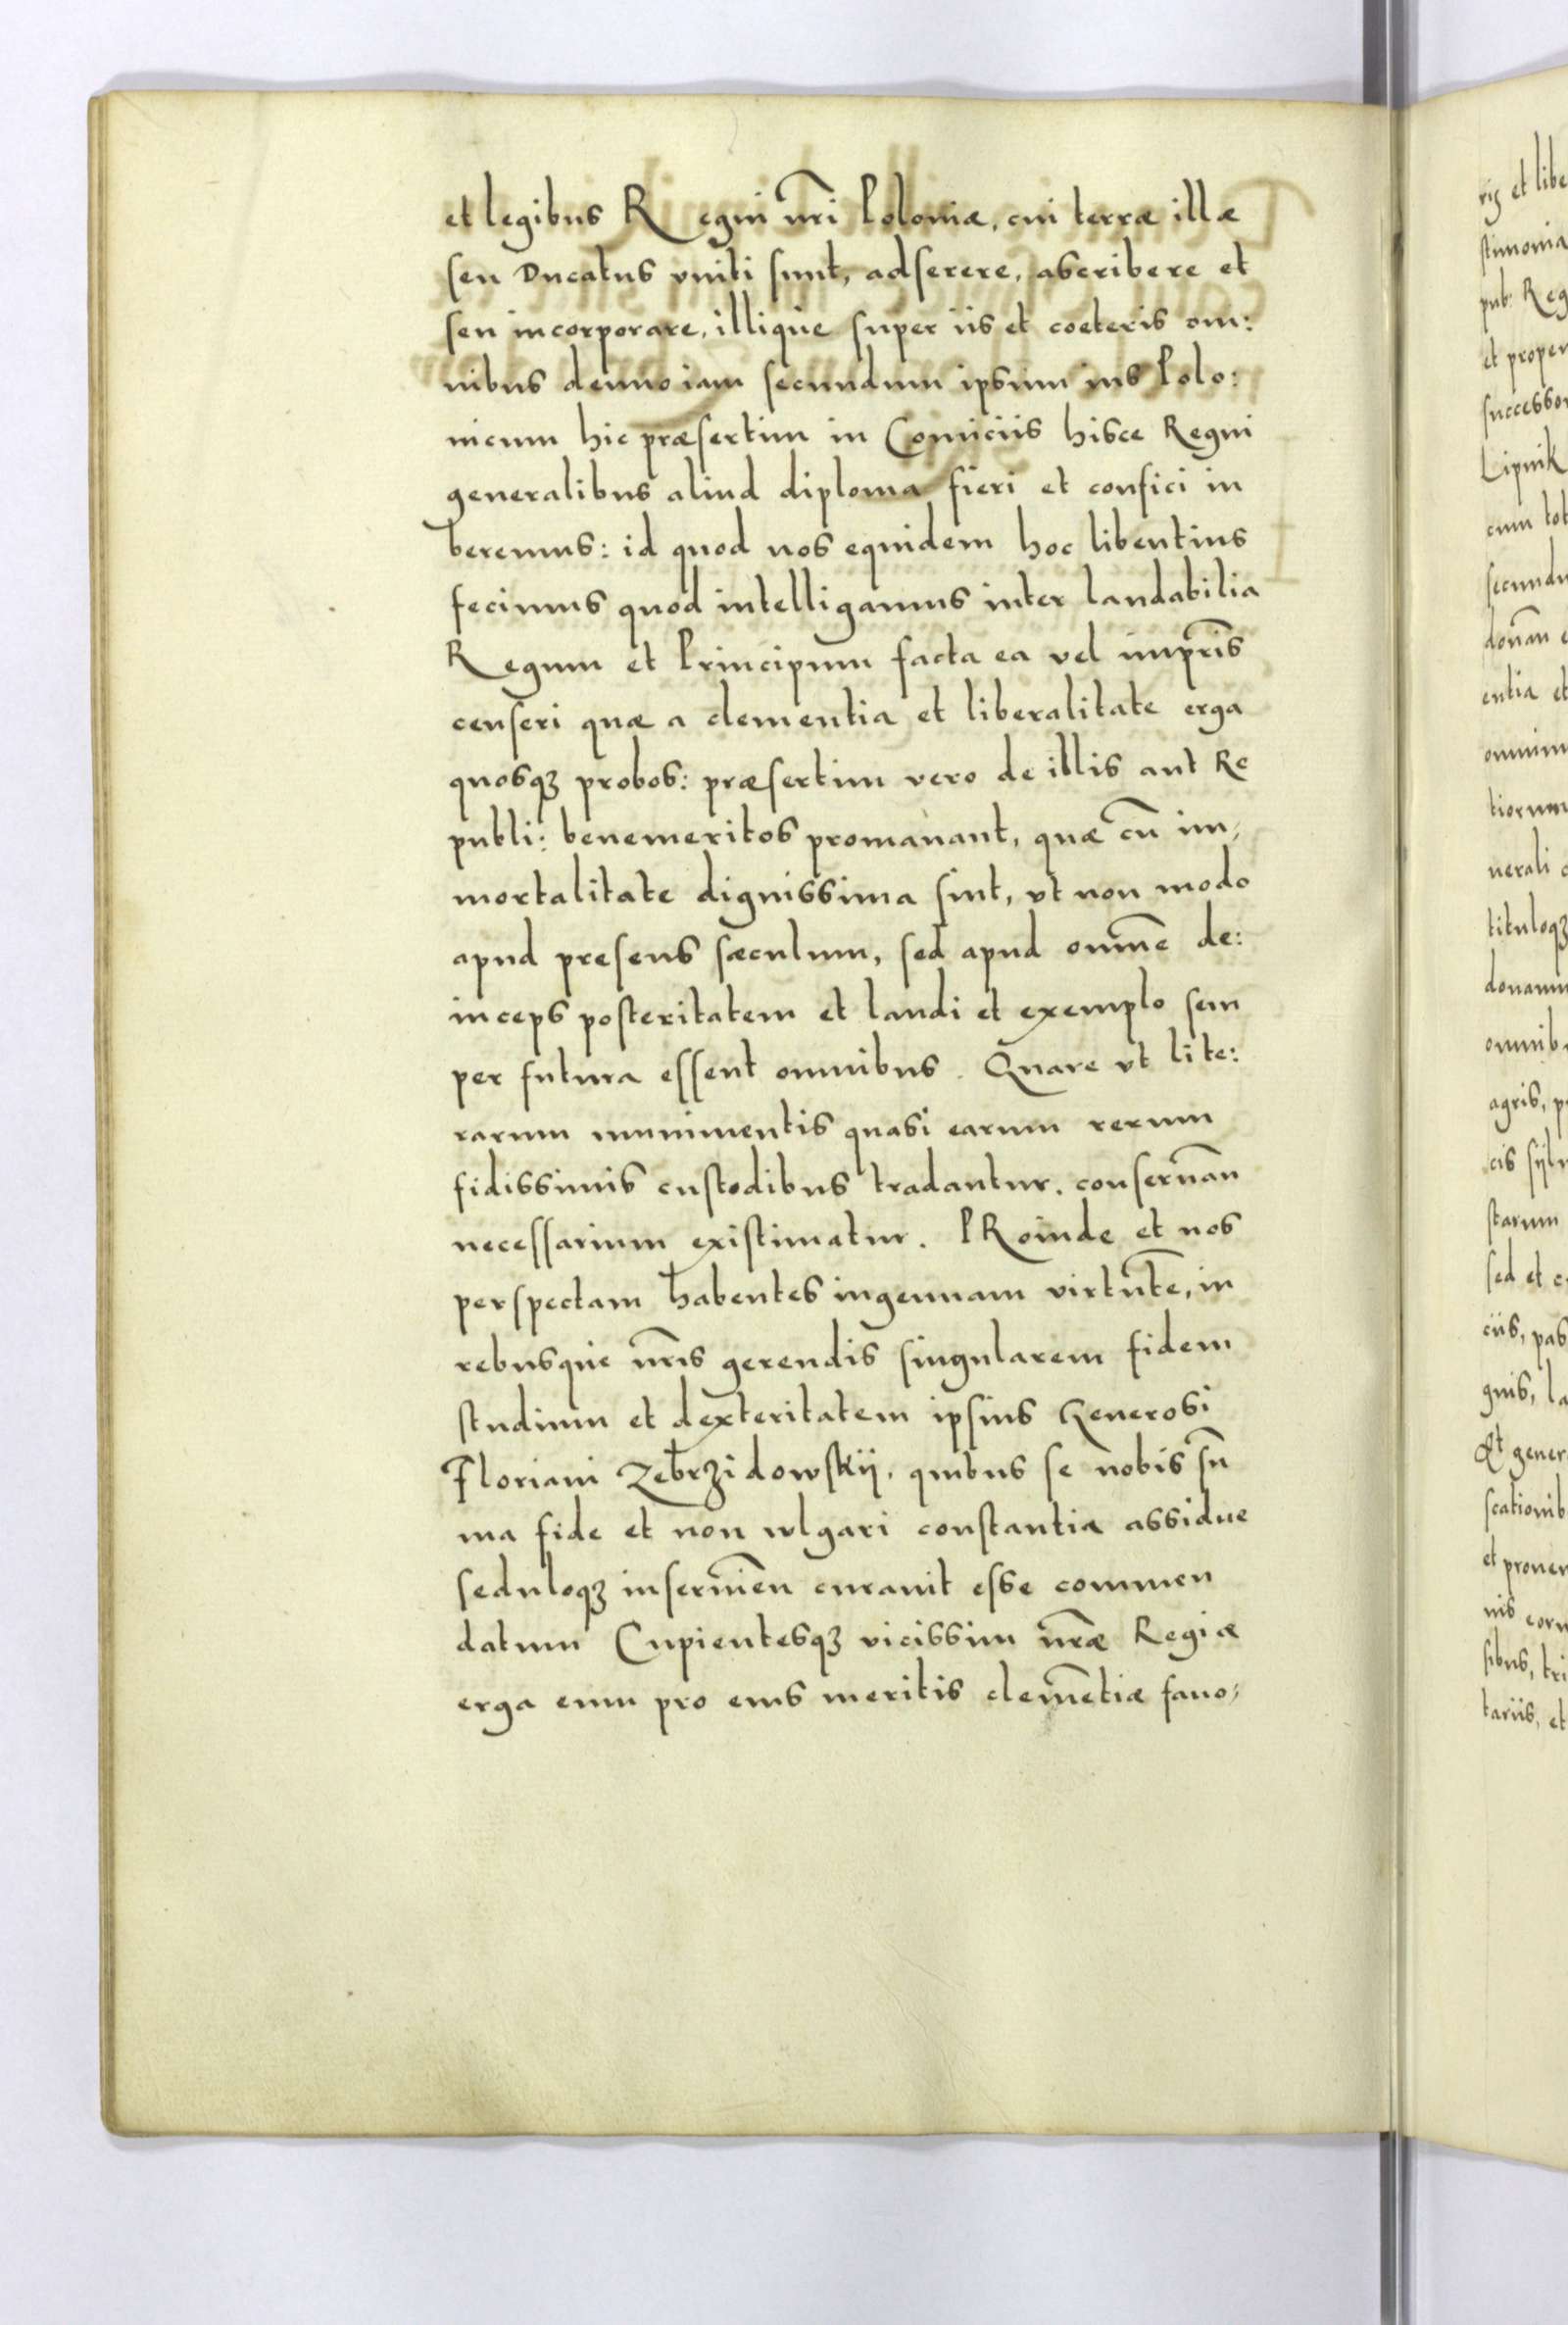 et legibus Regni nr̃i Poloniæ, cui terræ illæ
seu Ducatus vniti sunt, adserere, ascribere et
seu incorporare, illique super iis et coeteris om:
nibus denuo iam secundum ipsum ius Polo:
nicum hic præsertim in Comiciis hisce Regni
generalibus aliud diploma fieri et confici iu
beremus: id quod nos equidem hoc libentius
fecimus quod intelligamus inter laudabilia
Regum et Principum facta ea vel imprĩs
censeri quæ a clementia et liberalitate erga
quosqꝫ probos: præsertim vero de illis aut Re
publi: benemeritos promanant, quæ cũ im,
mortalitate dignissima sint, vt non modo
apud presens sæculum, sed apud omnẽ de:
inceps posteritatem et laudi et exemplo sem
per futura essent omnibus. Quare vt lite:
rarum munimentis quasi earum rerum
fidissimis custodibus tradantur. conseruañ
necessarium existimatur. PRoinde et nos
perspectam habentes ingenuam virtutẽ, in
rebusque nr̃is gerendis singularem fidem
studium et dexteritatem ipsius Generosi
Floriani Zebrzidowskij, quibus se nobis sũ
ma fide et non wlgari constantia assidue
seduloqꝫ inseruieñ curauit esse commen
datum Cupientesqꝫ vicissim nr̃æ Regiæ
erga eum pro eius meritis clemẽtiæ fauo,
ris et libe
stimonia
pub: Reg
et proper
successor
Lipnik
cum tot
secundu
donañ e
entia et
omnim
tiorum
nerali
tituloqꝫ
donamu
omnib
agris, p
cis sylu
starum
sed et c
ciis, pas
gnis, la
Et gener
scationib
et prouen
nis coru
sibus, tri
tariis, et